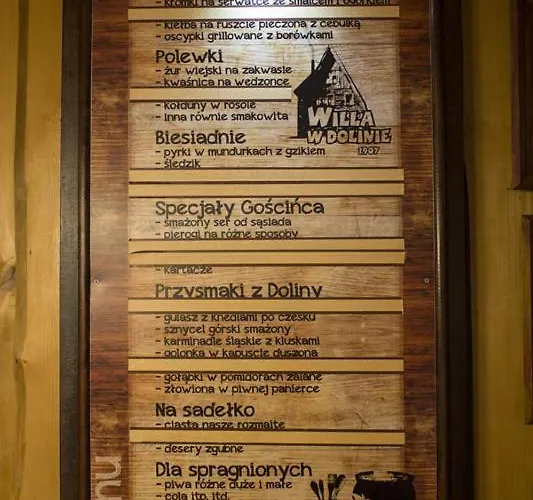 - kromki na serwatce ze smalcem i ogórkiem
- kiełba na ruszcie pieczona z cebulką
- oscypki grillowane z borówkami
Polewki
- żur wiejski na zakwasie
- kwaśnica na wędzonce
- kołduny w rosole
- inna równie smakowita
WILLA
W DOLINIE
1997
Biesiadnie
- pyrki w mundurkach z gzikiem
- śledzik
Specjały Gościńca
- smażony ser od sąsiada
- pierogi na różne sposoby
- kartacze
Przysmaki z Doliny
- gulasz z knedlami po czesku
- sznycel górski smażony
- karminadle śląskie z kluskami
- golonka w kapuście duszona
- gołąbki w pomidorach zalane
- złowiona w piwnej panierce
Na sadełko
- ciasta nasze rozmaite
- desery zgubne
Dla spragnionych
- piwa różne duże i małe
- cola itp. itd.